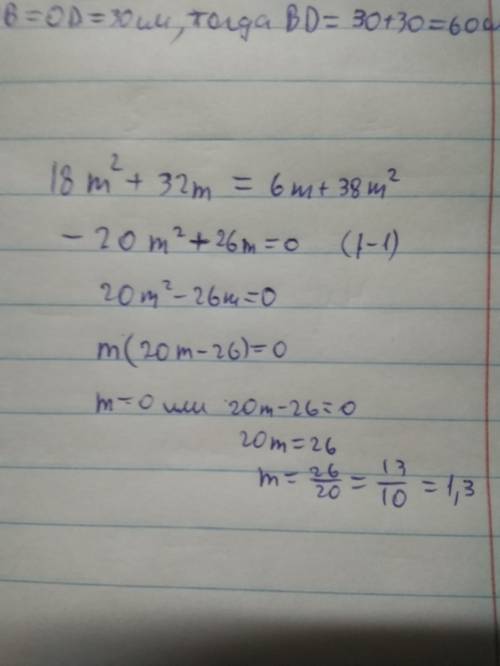 B=OD=30см, тогда BD= 30+30=60с
18m²+32m = 6m+38m²
-20m²+26m=0 (|-1)
20m²-26m=0
m(20m-26)=0
m=0 или 20m-26=0
20m=26
m= 26/20 = 13/10 = 1,3